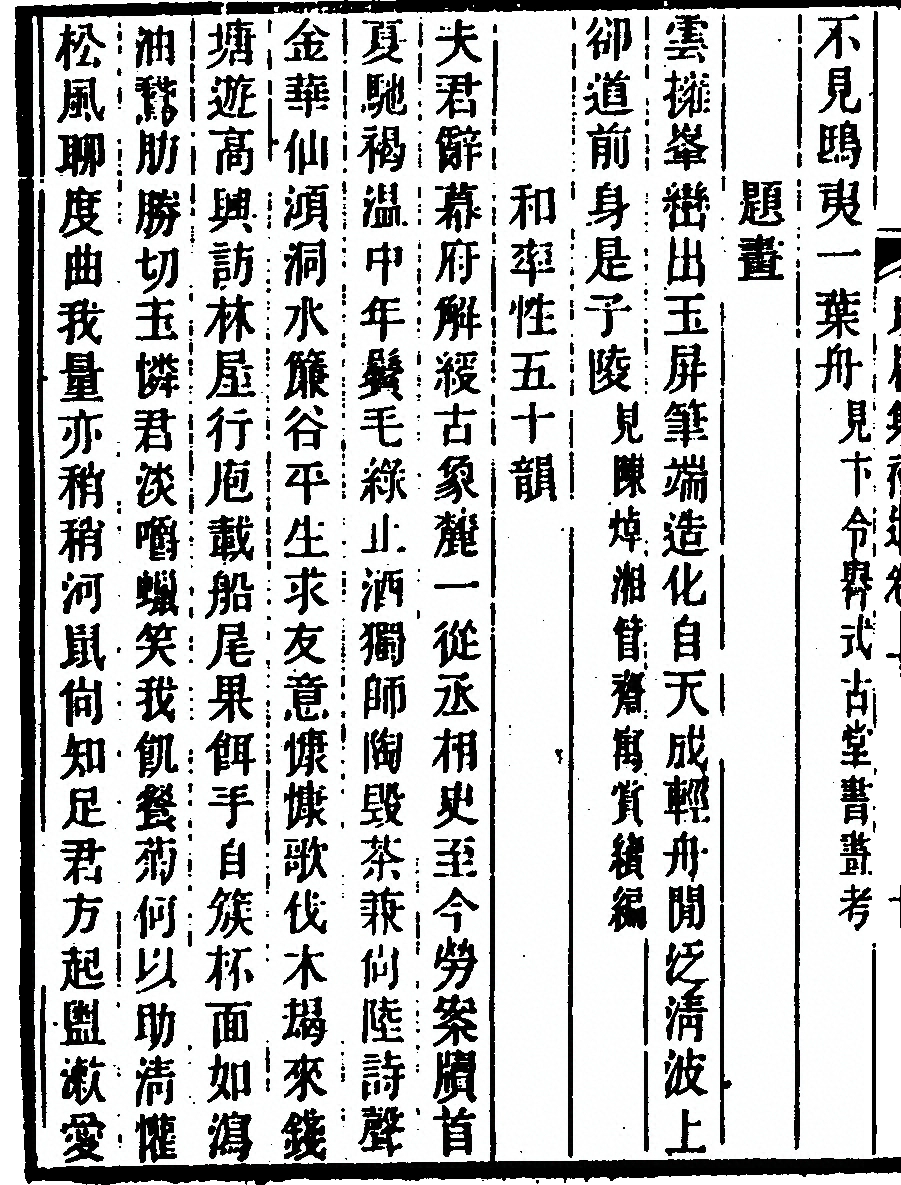 不見鴟夷一葉舟見卞令譽式古堂書畫考
題畫
雲擁峯巒出玉屏筆端造化自天成輕舟閒泛淸波上
卻道前身是子陵見陳焯湘管齋寓賞續編
和率性五十韻
夫君辭幕府解綬古象麓一從丞相史至今勞案牘首
夏馳褐温中年鬢毛綠止酒獨師陶毀茶兼尙陸詩聲
金華仙澒洞水簾谷平生求友意慷慷歌伐木朅來錢
塘遊高興訪林屋行庖載船尾果餌手自簇杯面如瀉
油鵞肪勝切玉憐君淡嚼蠟笑我飢餐菊何以助淸懽
松風聊度曲我量亦稍稍河鼠尙知足君方起盥漱愛